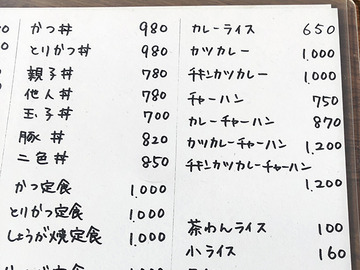 かつ丼 980
とりかつ丼 980
親子丼 780
他人丼 780
玉子丼 700
豚丼 820
二色丼 850
かつ定食 1,000
とりかつ定食 1,000
しょうが焼定食 1,000
カレーライス 650
カツカレー 1,000
チキンカツカレー 1,000
チャーハン 750
カレーチャーハン 870
カツカレーチャーハン 1,200
チキンカツカレーチャーハン
1,200
茶わんライス 100
小ライス 160